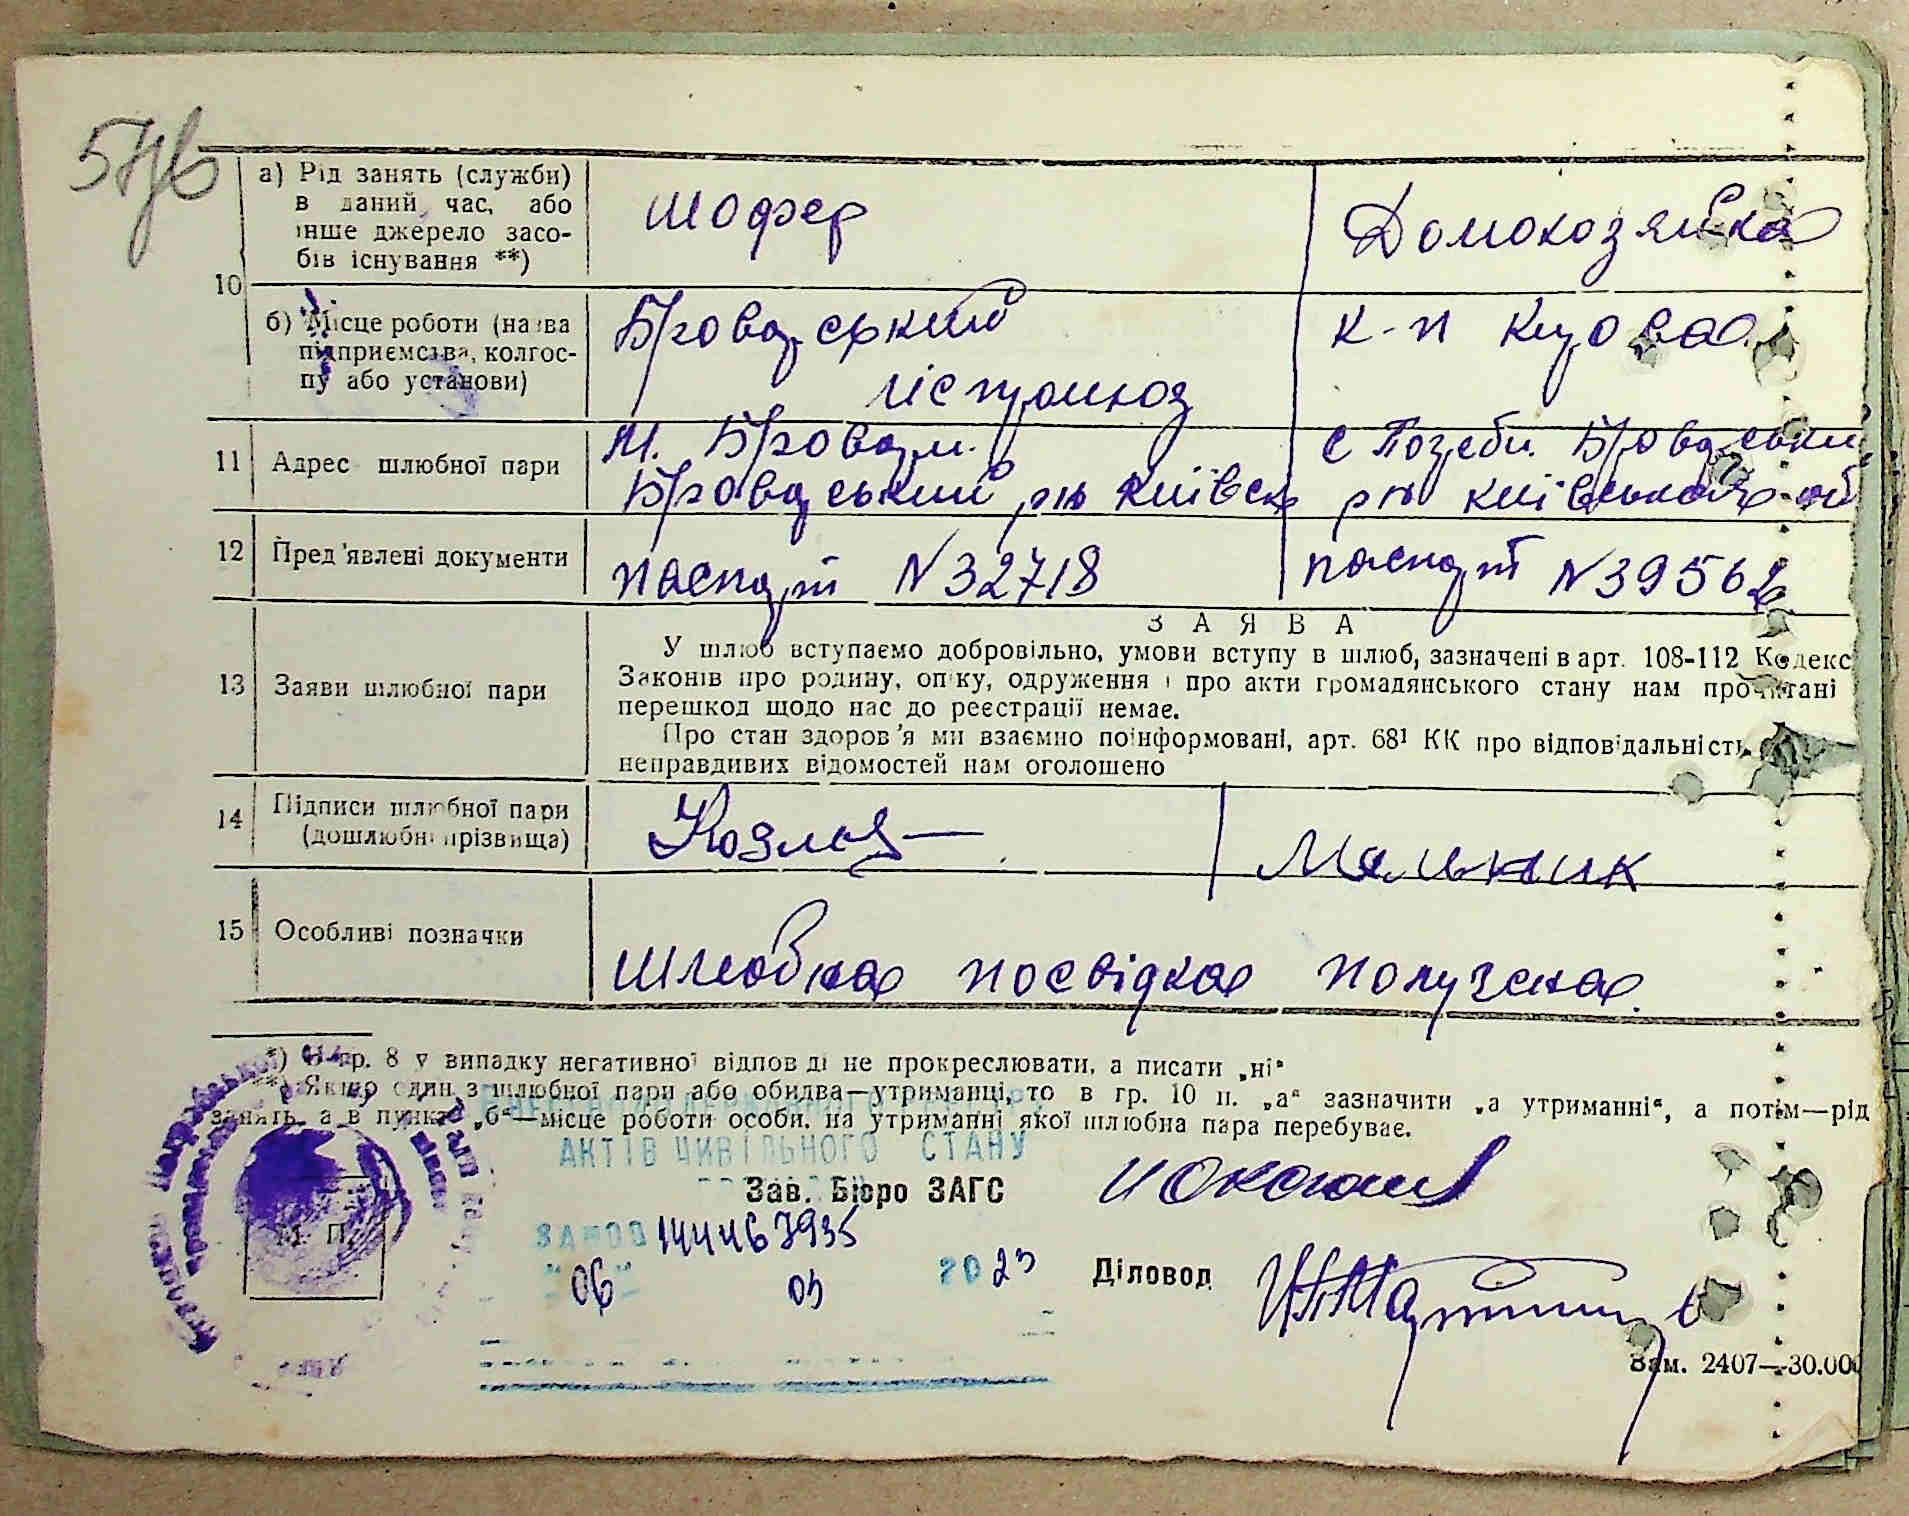 а) Рід занять (служби)
в даний час, або
інше джерело засо-
бів існування **)
шофер
Домохозяйка
10
б) Місце роботи (назва
підприємства, колгос-
пу або установи)
Броварський
міспромсоюз
к-п
11
Адрес шлюбної пари
м. Бровари.
Броварський р-н Київск
с Погреби. Броварський
р-н Київської об
12
Пред'явлені документи
паспорт N 32718
паспорт N 39562
13
Заяви шлюбної пари
ЗАЯВА
У шлюб вступаємо добровільно, умови вступу в шлюб, зазначені в арт. 108-112 Кодекс
Законів про родину, опіку, одруження і про акти громадянського стану нам прочитані
перешкод щодо нас до реєстрації немає.
Про стан здоров'я ми взаємно поінформовані, арт. 68¹ КК про відповідальність
неправдивих відомостей нам оголошено
14
Підписи шлюбної пари
(дошлюбні прізвища)
Мельник
15
Особливі позначки
шлюбна посвідка получена.
*) В гр. 8 у випадку негативної відповіді не прокреслювати, а писати „ні“
**) Якщо один з шлюбної пари або обидва—утриманці, то в гр. 10 п. „а“ зазначити „а утриманні“, а потім—рід
занять, а в пункті „б“—місце роботи особи, на утриманні якої шлюбна пара перебуває.
АКТІВ ЦИВІЛЬНОГО СТАНУ
Зав. Бюро ЗАГС
М. П.
"06" 03 2023
Діловод
Зам. 2407—30.000